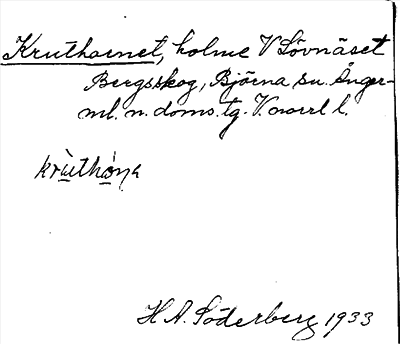 Kruthornet, holme V Lövnäset
Bergsskog, Björna sn. Ånger-
ml. n. doms. tg. V.norrl l.
H A. Söderberg 1933